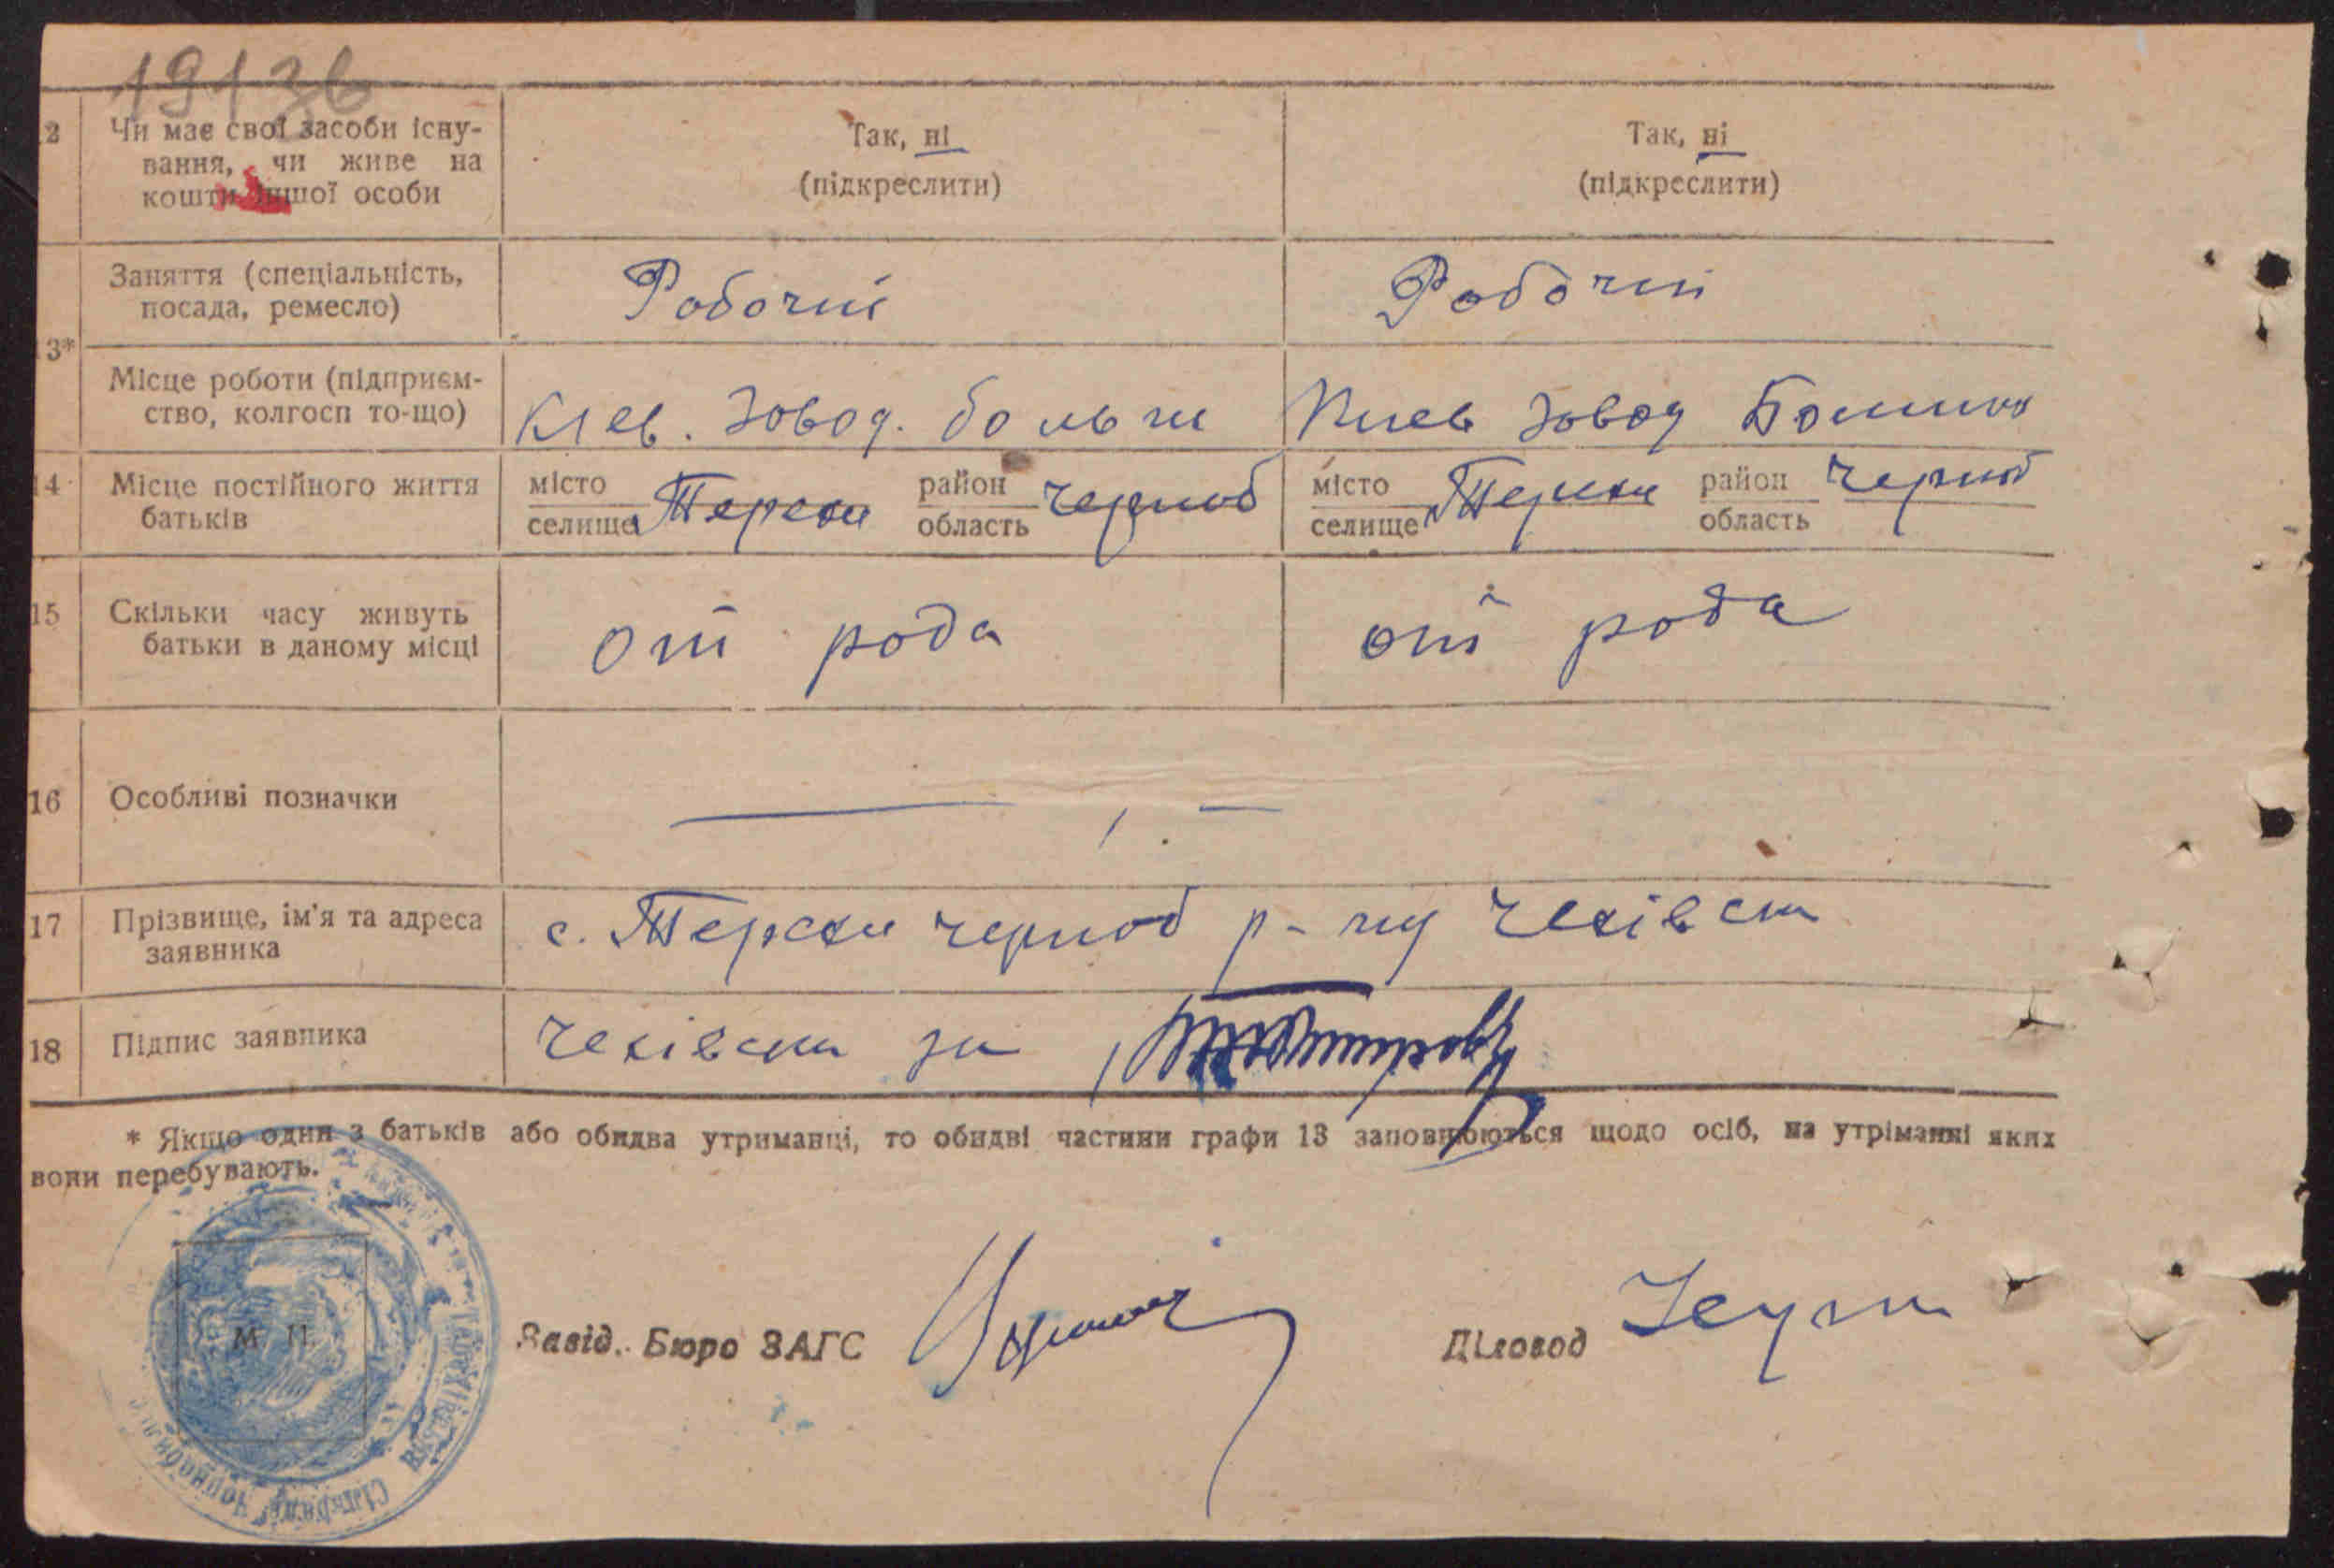 19136
2 Чи має свої засоби існу-
вання, чи живе на
кошти іншої особи
Так, ні
(підкреслити)
Так, ні
(підкреслити)
3*
Заняття (спеціальність,
посада, ремесло)
Робочий
Робочий
Місце роботи (підприєм-
ство, колгосп то-що)
Киев Завод
14 Місце постійного життя
батьків
місто
селище
район
область
Черноб
місто
селище
район
область
Черноб
15 Скільки часу живуть
батьки в даному місці
от рода
от рода
16 Особливі позначки
17 Прізвище, ім'я та адреса
заявника
с. черноб р-ну
18 Підпис заявника
за
* Якщо один з батьків або обидва утриманці, то обидві частини графи 13 заповнюються щодо осіб, на утріманні яких
вони перебувають.
М. П.
Завід. Бюро ЗАГС
Діловод